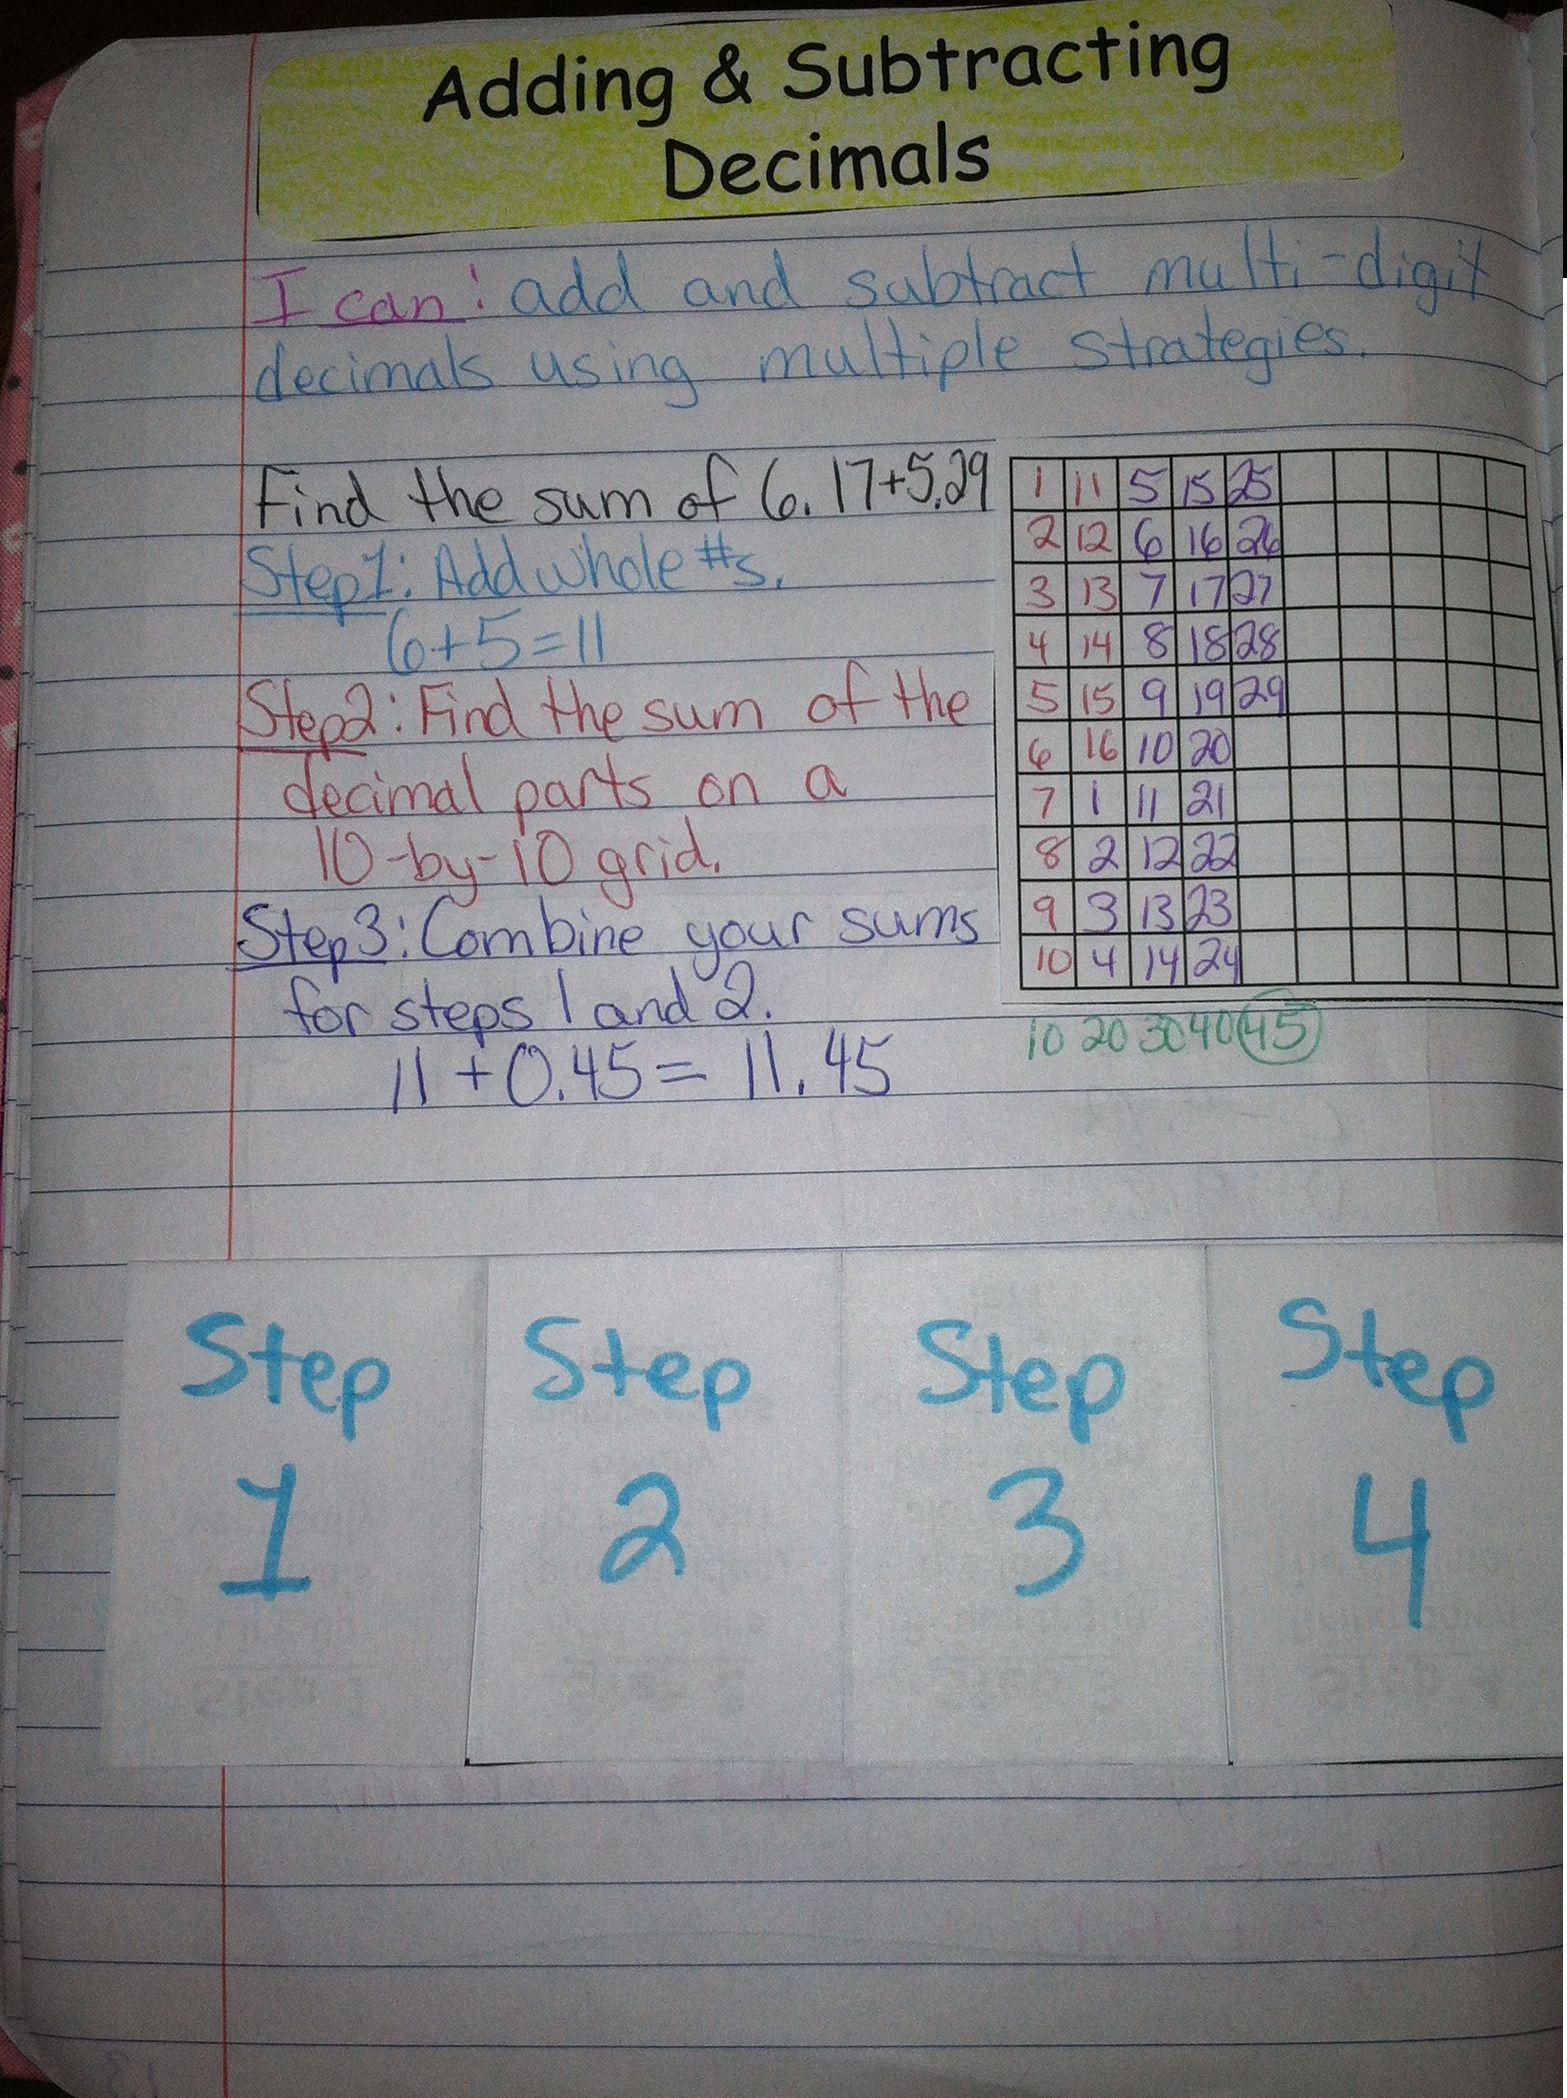 Adding & Subtracting
Decimals
I can: add and subtract multi-digit
decimals using multiple strategies.
Find the sum of 6.17+5.29
Step 1: Add whole #s.
6+5=11
Step 2: Find the sum of the
decimal parts on a
10-by-10 grid.
Step 3: Combine your sums
for steps 1 and 2.
11 + 0.45 = 11.45
1 11 5 15 25
2 12 6 16 26
3 13 7 17 27
4 14 8 18 28
5 15 9 19 29
6 16 10 20
7 1 11 21
8 2 12 22
9 3 13 23
10 4 14 24
10 20 30 40 45
Step Step Step Step
1 2 3 4